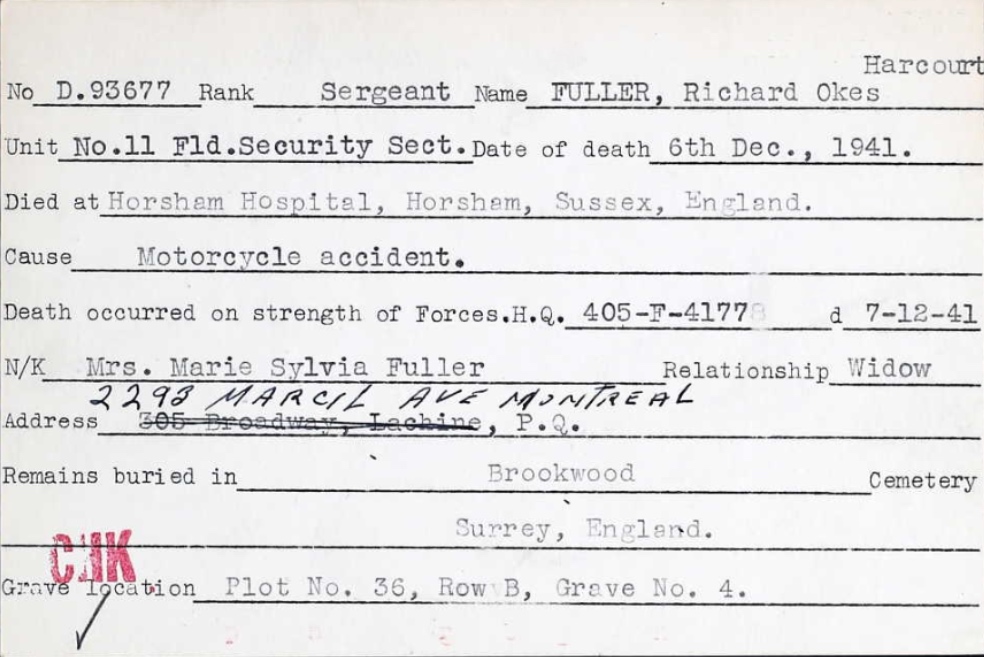 Harcourt
No D.93677 Rank Sergeant Name FULLER, Richard Okes
Unit No.11 Fld.Security Sect. Date of death 6th Dec., 1941.
Died at Horsham Hospital, Horsham, Sussex, England.
Cause Motorcycle accident.
Death occurred on strength of Forces.H.Q. 405-F-41778 d 7-12-41
N/K Mrs. Marie Sylvia Fuller Relationship Widow
2293 MARCIL AVE MONTREAL
Address 305 Broadway, Lachine, P.Q.
Remains buried in Brookwood Cemetery
Surrey, England.
Grave location Plot No. 36, Row B, Grave No. 4.